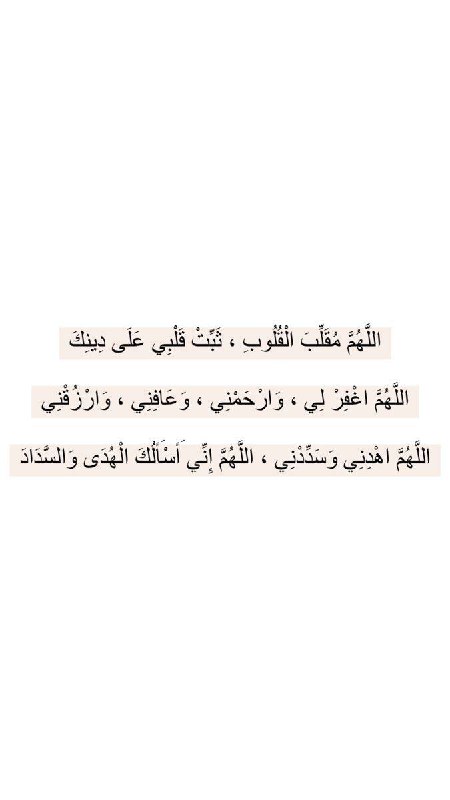 اللَّهُمَّ مُقَلِّبَ الْقُلُوبِ ، ثَبِّتْ قَلْبِي عَلَى دِينِكَ
اللَّهُمَّ اغْفِرْ لِي ، وَارْحَمْنِي ، وَعَافِنِي ، وَارْزُقْنِي
اللَّهُمَّ اهْدِنِي وَسَدِّدْنِي ، اللَّهُمَّ إِنِّي أَسْأَلُكَ الْهُدَى وَالسَّدَادَ